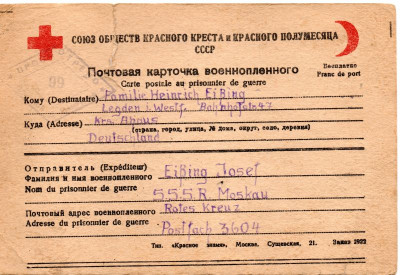 СОЮЗ ОБЩЕСТВ КРАСНОГО КРЕСТА и КРАСНОГО ПОЛУМЕСЯЦА
СССР
Почтовая карточка военнопленного
Carte postale au prisonnier de guerre
Бесплатно
Franc de port
Кому (Destinataire) Familie Heinrich Eißing
Legden i. Westf. Bahnhofstr. 47
Куда (Adresse) Krs. Ahaus
(страна, город, улица, № дома, округ, село, деревня)
Deutschland
Отправитель (Expéditeur)
Фамилия и имя военнопленного Eißing Josef
Nom du prisonnier de guerre
S.S.S.R. Moskau
Почтовый адрес военнопленного Rotes Kreuz
Adresse du prisonnier de guerre Postfach 3604
Тип. «Красное знамя», Москва, Сущевская, 21. Заказ 2922